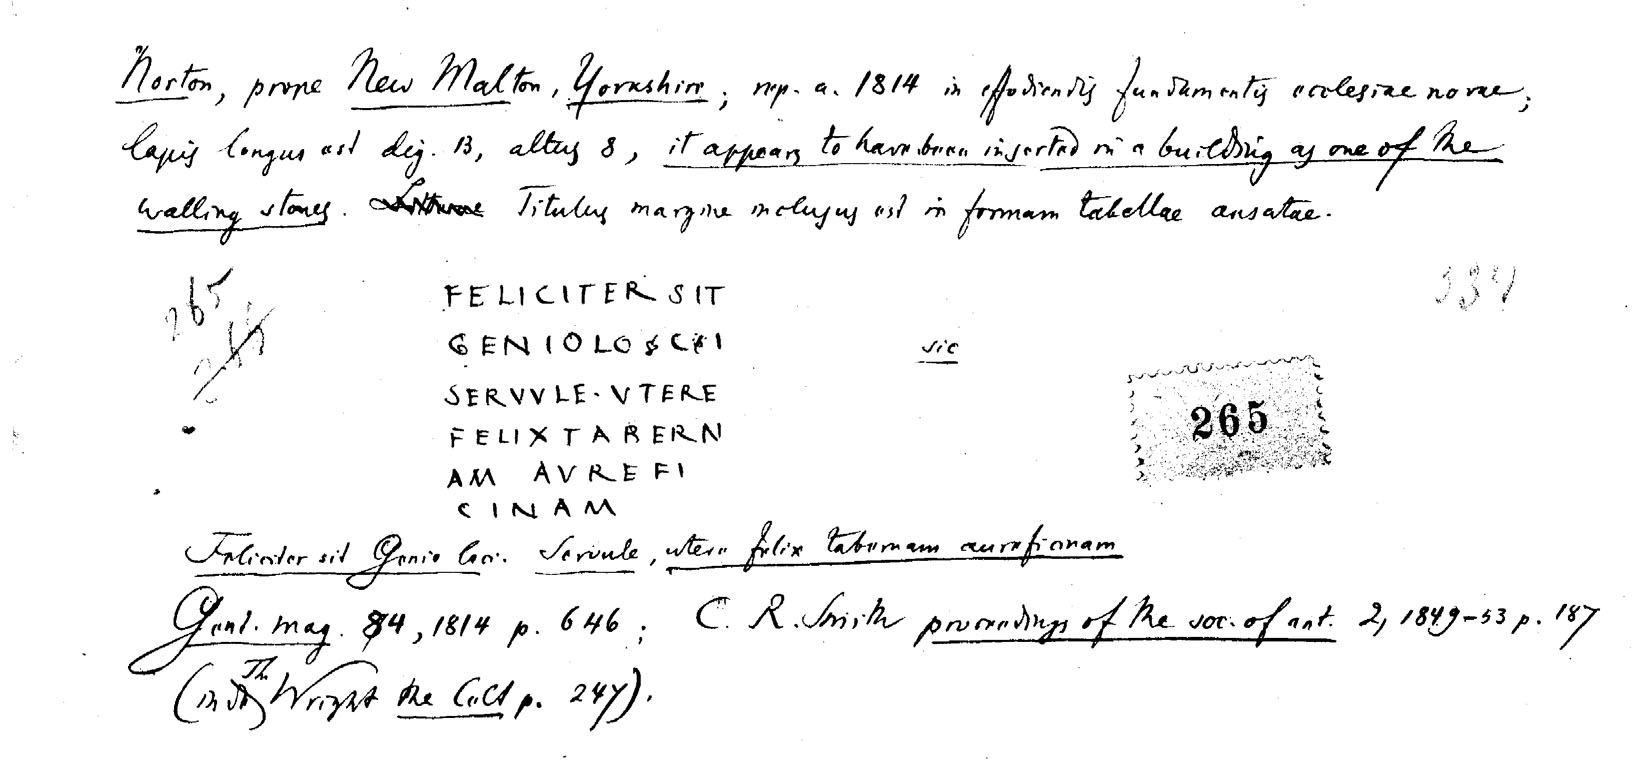 Norton, prope New Malton, Yorkshire; rep. a. 1814 in effodiendis fundamentis ecclesiae novae;
lapis longus est dig. 13, altus 8, it appears to have been inserted in a building as one of the
walling stones. Titulus margine inclusus est in formam tabellae ansatae.
265
334
FELICITER SIT
GENIOLOSCI
sic
SERVVLE·VTERE
265
FELIXTABERN
AM AVREFI
CINAM
Feliciter sit Genio loci. Servule, utere felix tabernam aureficinam
Gent. mag. 84, 1814 p. 646; C. R. Smith proceedings of the soc. of ant. 2, 1849-53 p. 187
Th.
Wright the Celt p. 247).